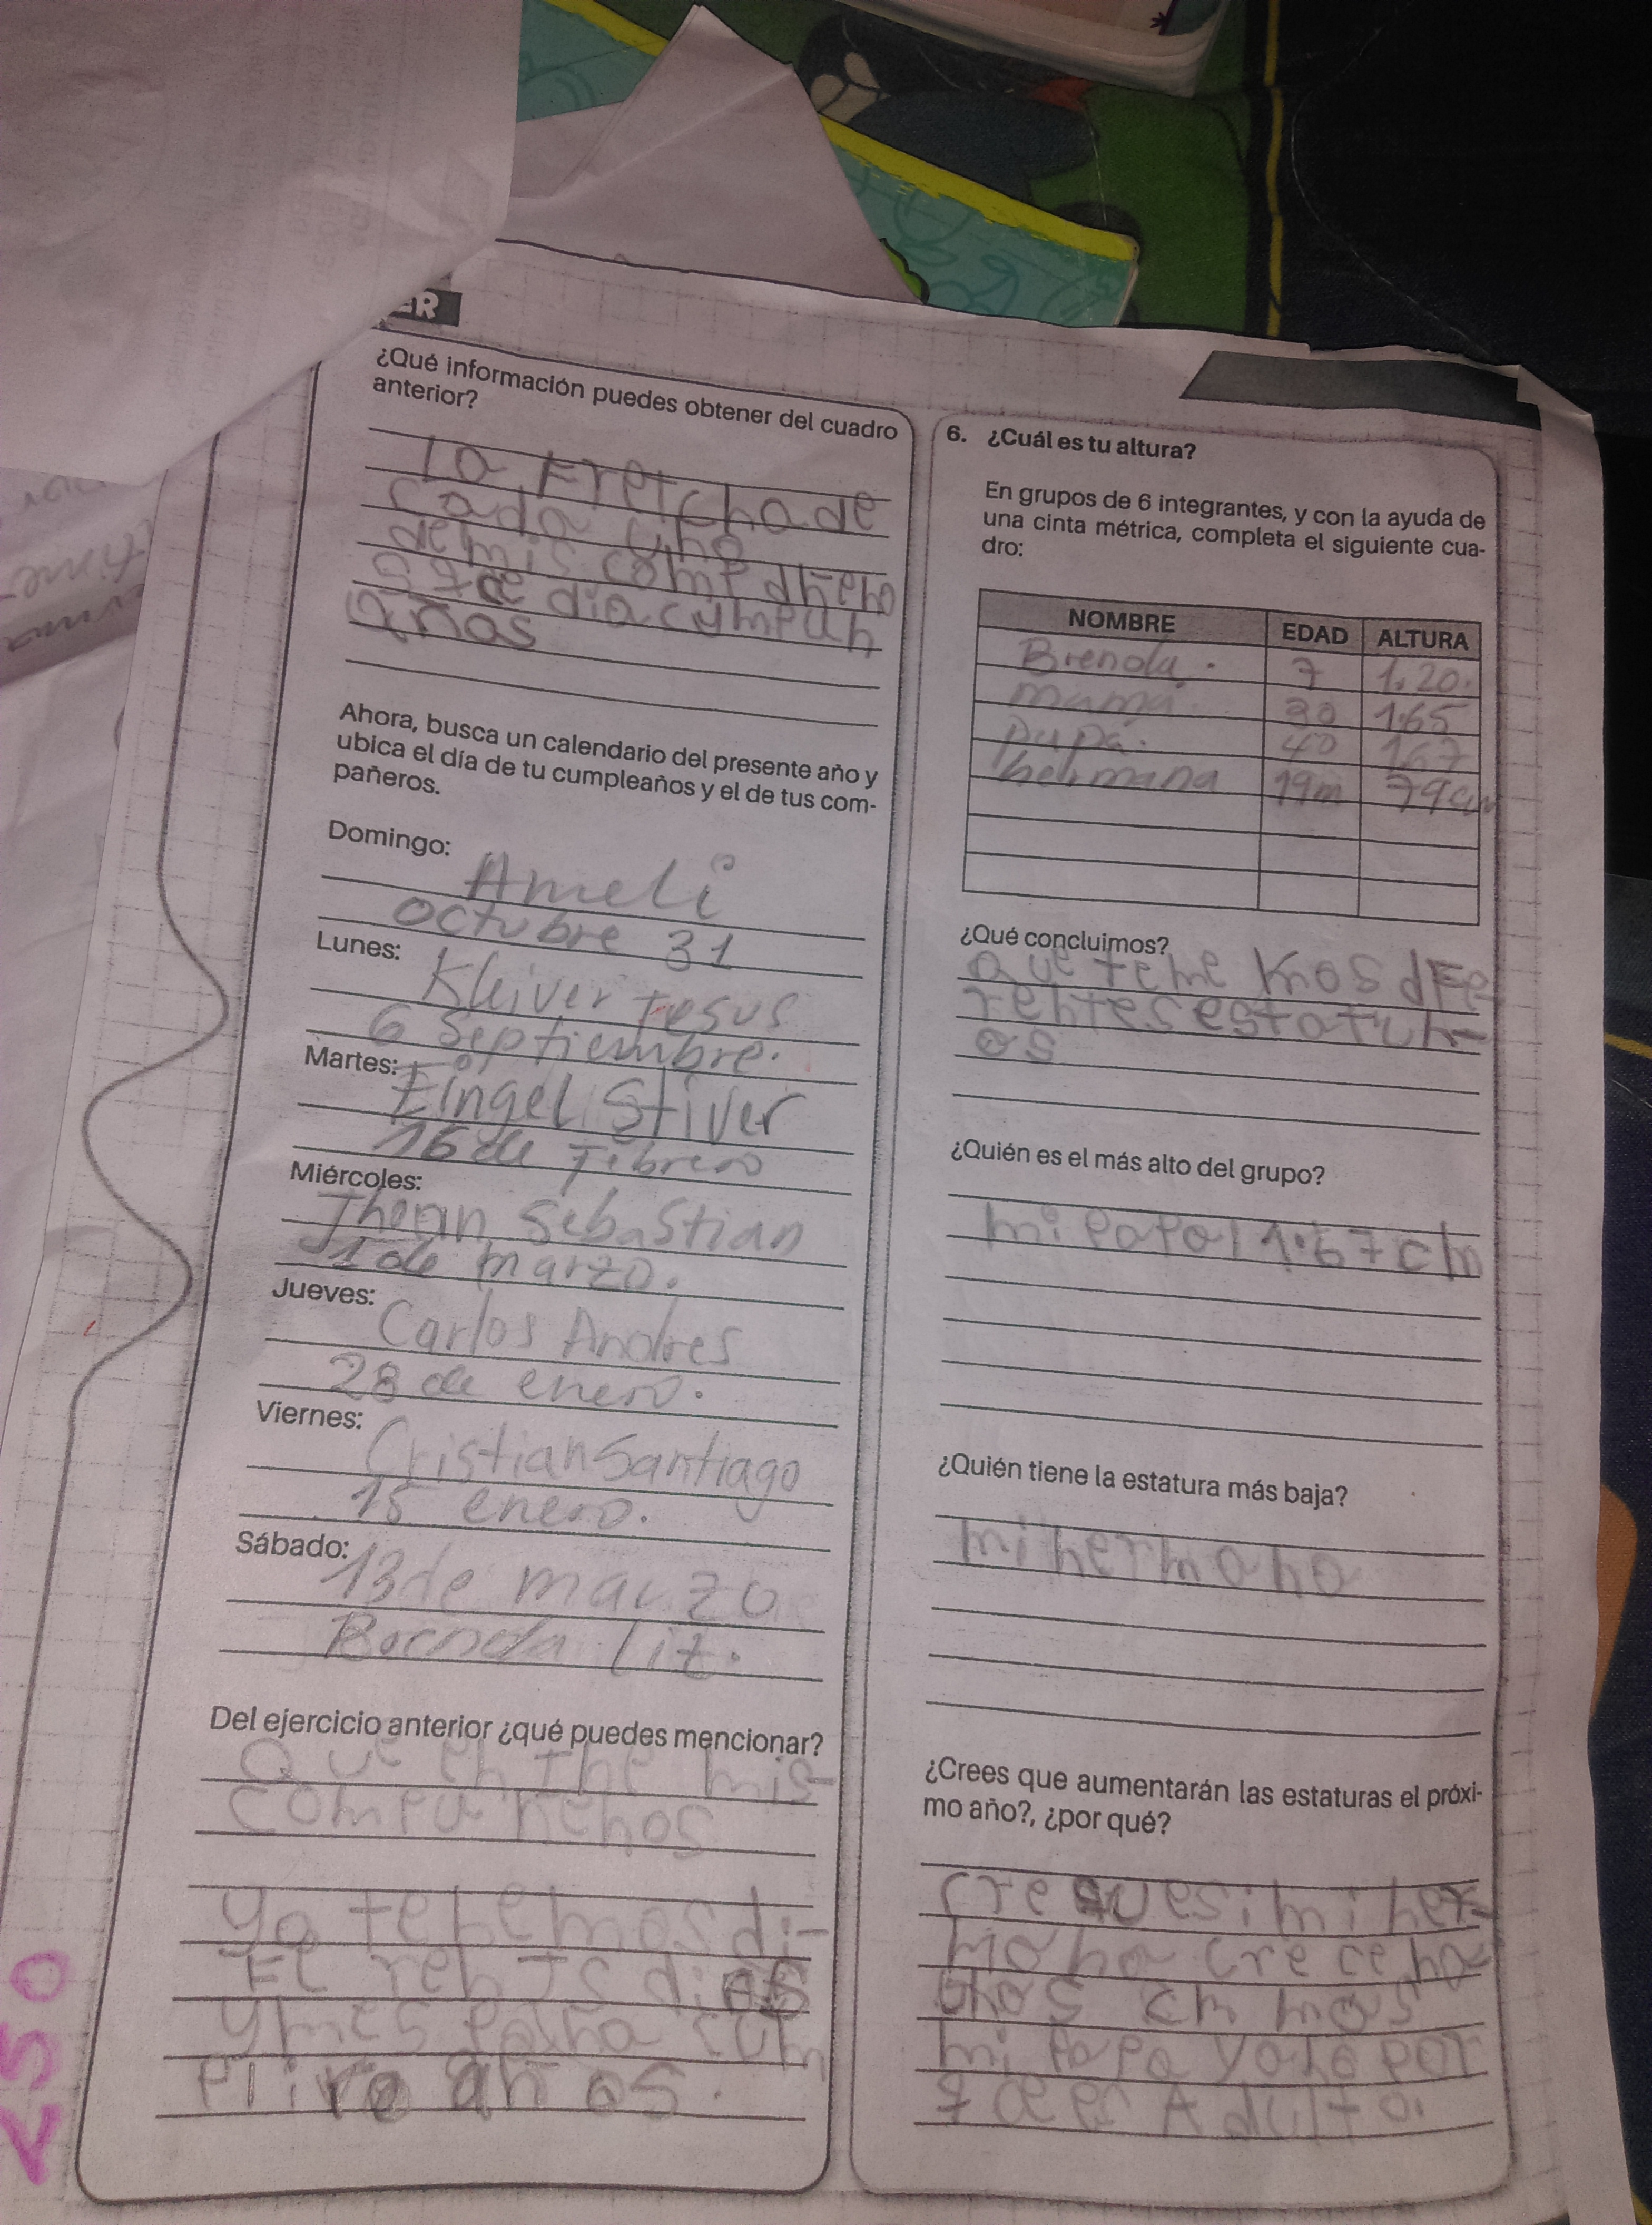 ¿Qué información puedes obtener del cuadro
anterior?
la Fretcha de
cada uno
de mis compañero
que dia cumplan
años
Ahora, busca un calendario del presente año y
ubica el día de tu cumpleaños y el de tus com-
pañeros.
Domingo:
Ameli
octubre 31
Lunes:
Kleiver Jesus
6 Septiembre.
Martes:
Eíngel Stiver
16 de Febrero
Miércoles:
Sebastian
1 de marzo.
Jueves:
Carlos Andres
28 de enero.
Viernes:
Cristian Santiago
15 enero.
Sábado:
13 de marzo
Brenda Liz.
Del ejercicio anterior ¿qué puedes mencionar?
Que entre mis
compañeros
yo tenemos di-
Ferentes dias
y mes
años.
6. ¿Cuál es tu altura?
En grupos de 6 integrantes, y con la ayuda de
una cinta métrica, completa el siguiente cua-
dro:
NOMBRE EDAD ALTURA
Brenda. 7 1.20.
mamá. 30 1.65
papá. 40 167
hermana 19m 79cm
¿Qué concluimos?
Que
rentes estatur-
as
¿Quién es el más alto del grupo?
mi papa 1.67 cm
¿Quién tiene la estatura más baja?
mi hermana
¿Crees que aumentarán las estaturas el próxi-
mo año?, ¿por qué?
cre que si mi her-
mana crecera
unos cm mas
mi papa ya no por
q ya es Adulto.
250